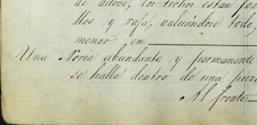 de adove, los techos estan for
llos y rafa, valuandose todo,
menor en
Una Noria abundante y permanente
se halla dentro de una pieza
Al frente